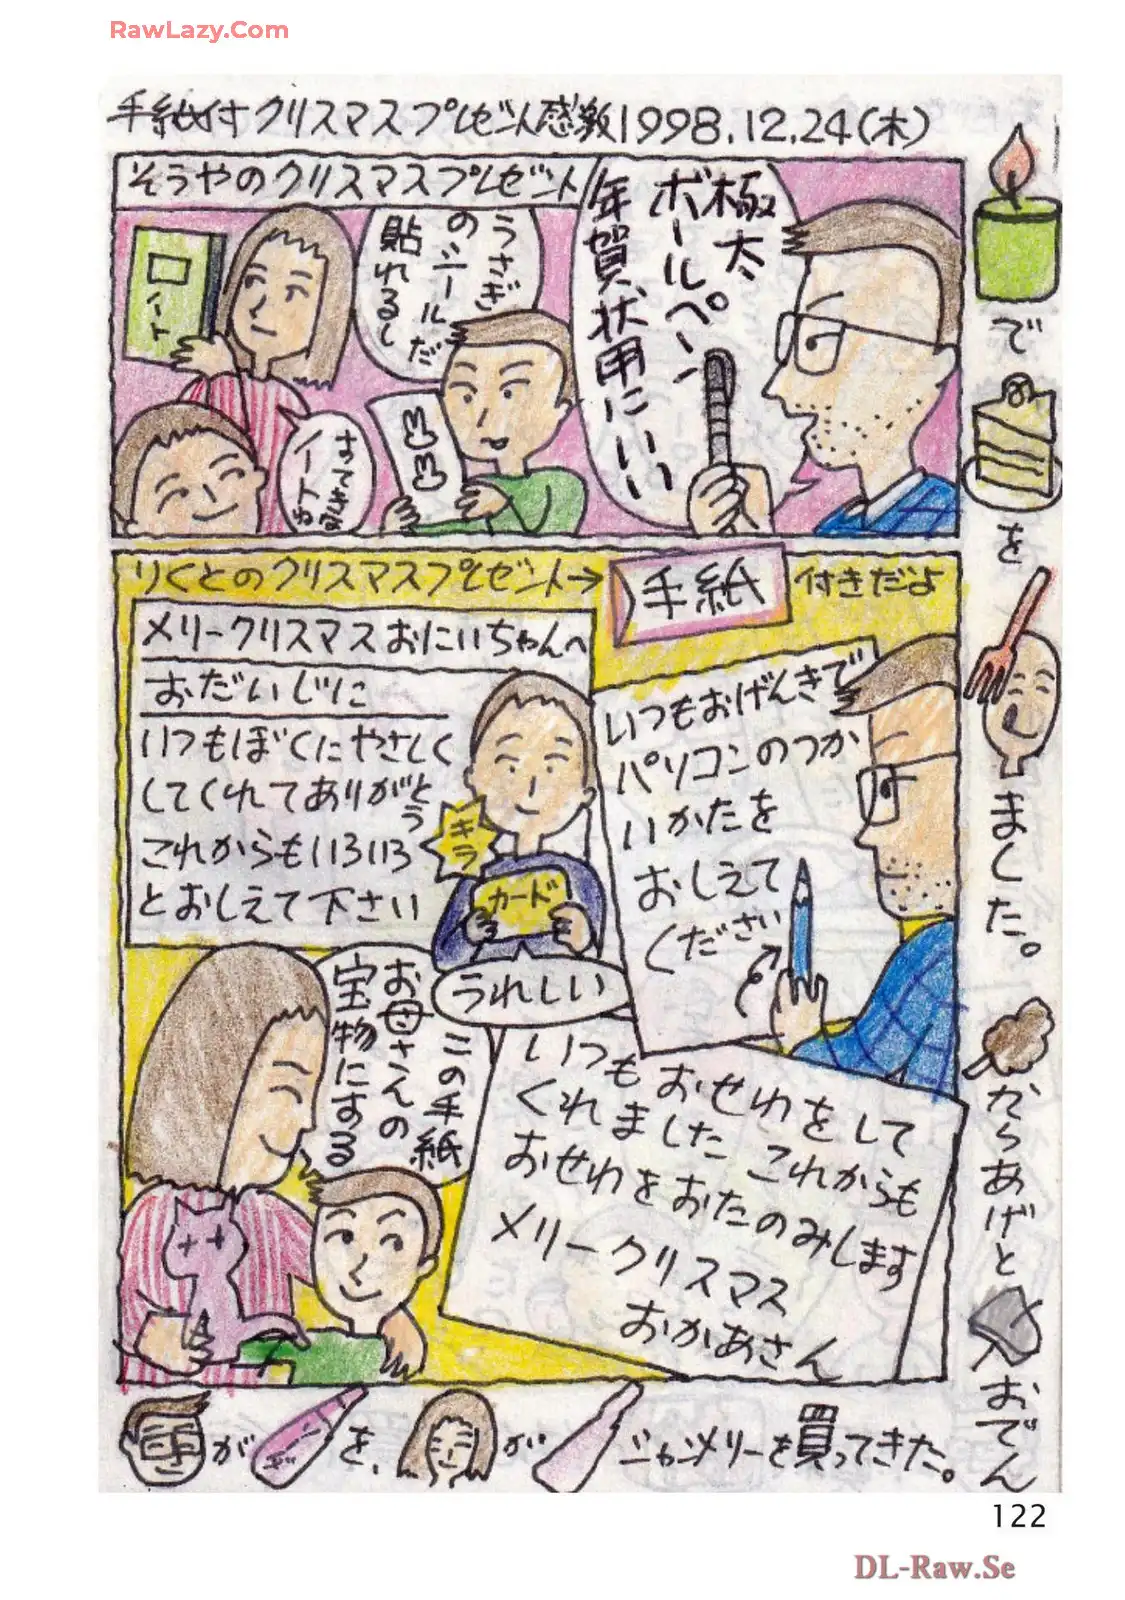 RawLazy.Com
手紙付クリスマスプレゼント感激 1998.12.24(木)
そうやのクリスマスプレゼント
極太
ボールペン
年賀状用にいい
うさぎ
のシールだ
貼れるし
ノート
すてきな
ノートね
りくとのクリスマスプレゼント→
手紙
付きだよ
メリークリスマスおにいちゃんへ
おだいじに
いつもぼくにやさしく
してくれてありがとう
これからもいろいろ
とおしえて下さい
キラ
カード
うれしい
いつもおげんきで
パソコンのつか
いかたを
おしえて
ください
この手紙
お母さんの
宝物にする
いつもおせわをして
くれました これからも
おせわをおたのみします
メリークリスマス
おかあさん
で
を
ました。
からあげと
おでん
が
を、
が
シャンメリーを買ってきた。
122
DL-Raw.Se